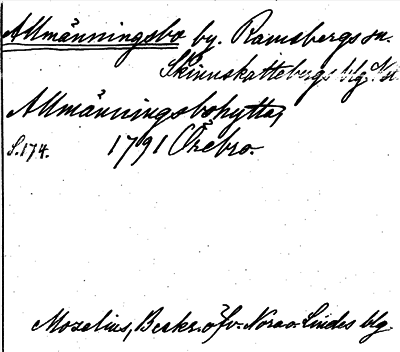 Allmänningsbo by. Ramsbergs sn.
Skinnskattebergs blg
Allmänningsbohytta,
S.174. 1791 Örebro.
Mozelius, Beskr. öfv. Nora o. Lindes blg.